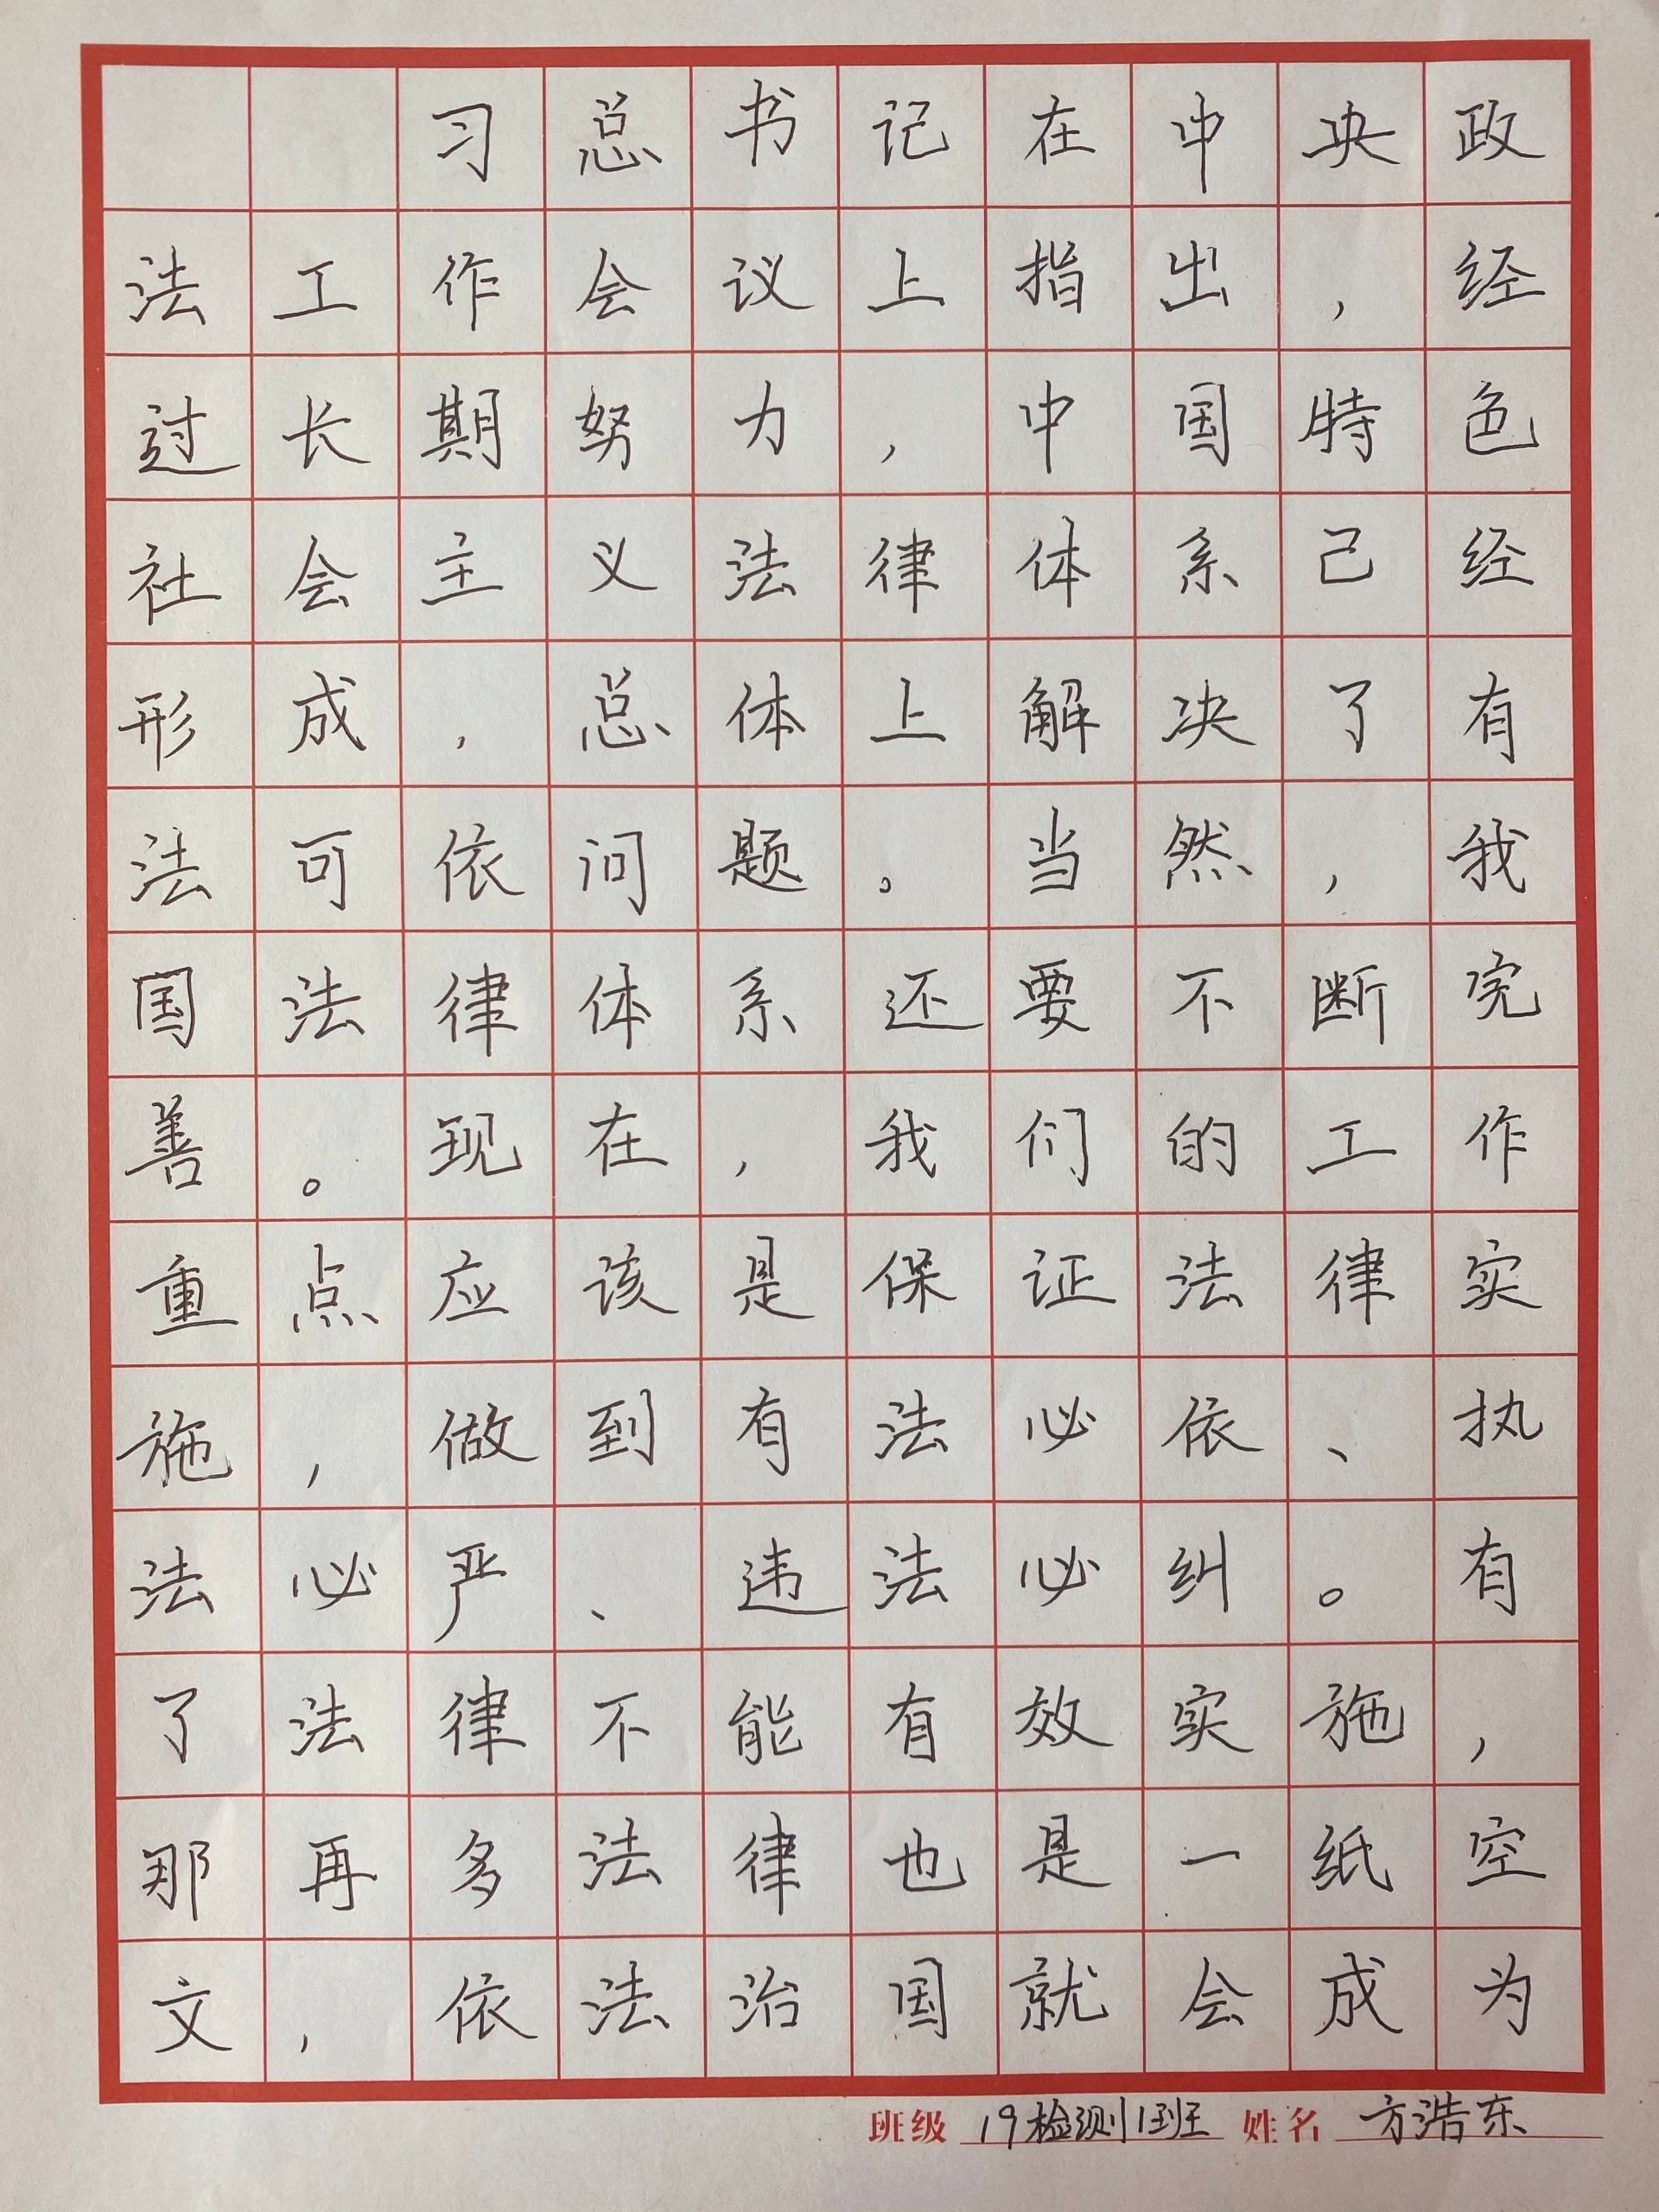 习总书记在中央政
法工作会议上指出，经
过长期努力，中国特色
社会主义法律体系己经
形成，总体上解决了有
法可依问题。当然，我
国法律体系还要不断完
善。现在，我们的工作
重点应该是保证法律实
施，做到有法必依、执
法必严、违法必纠。有
了法律不能有效实施，
那再多法律也是一纸空
文，依法治国就会成为
班级 19检测1班 姓名 方浩东